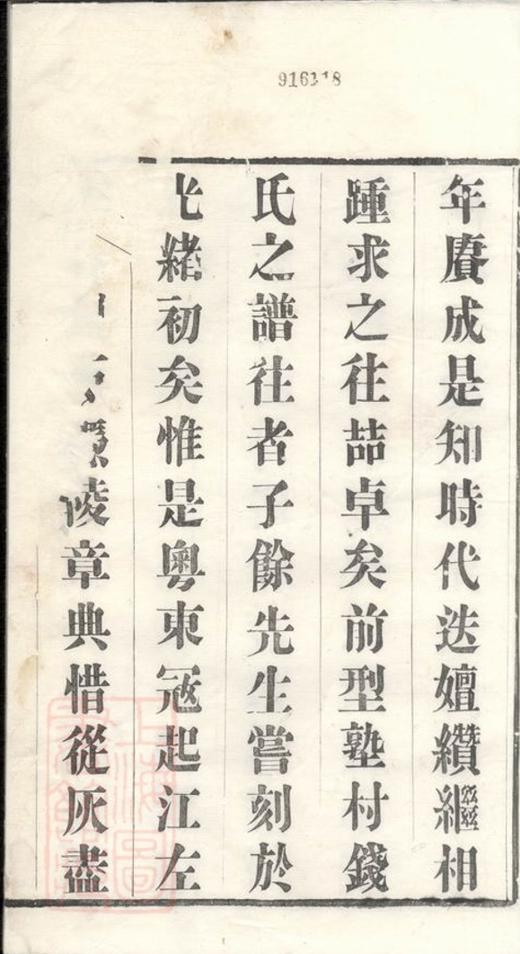 916118
年賡成是知時代迭嬗纘繼相
踵求之往喆卓矣前型塾村錢
氏之譜往者子餘先生嘗刻於
緒初矣惟是粵東寇起江左
陵章典惜從灰盡